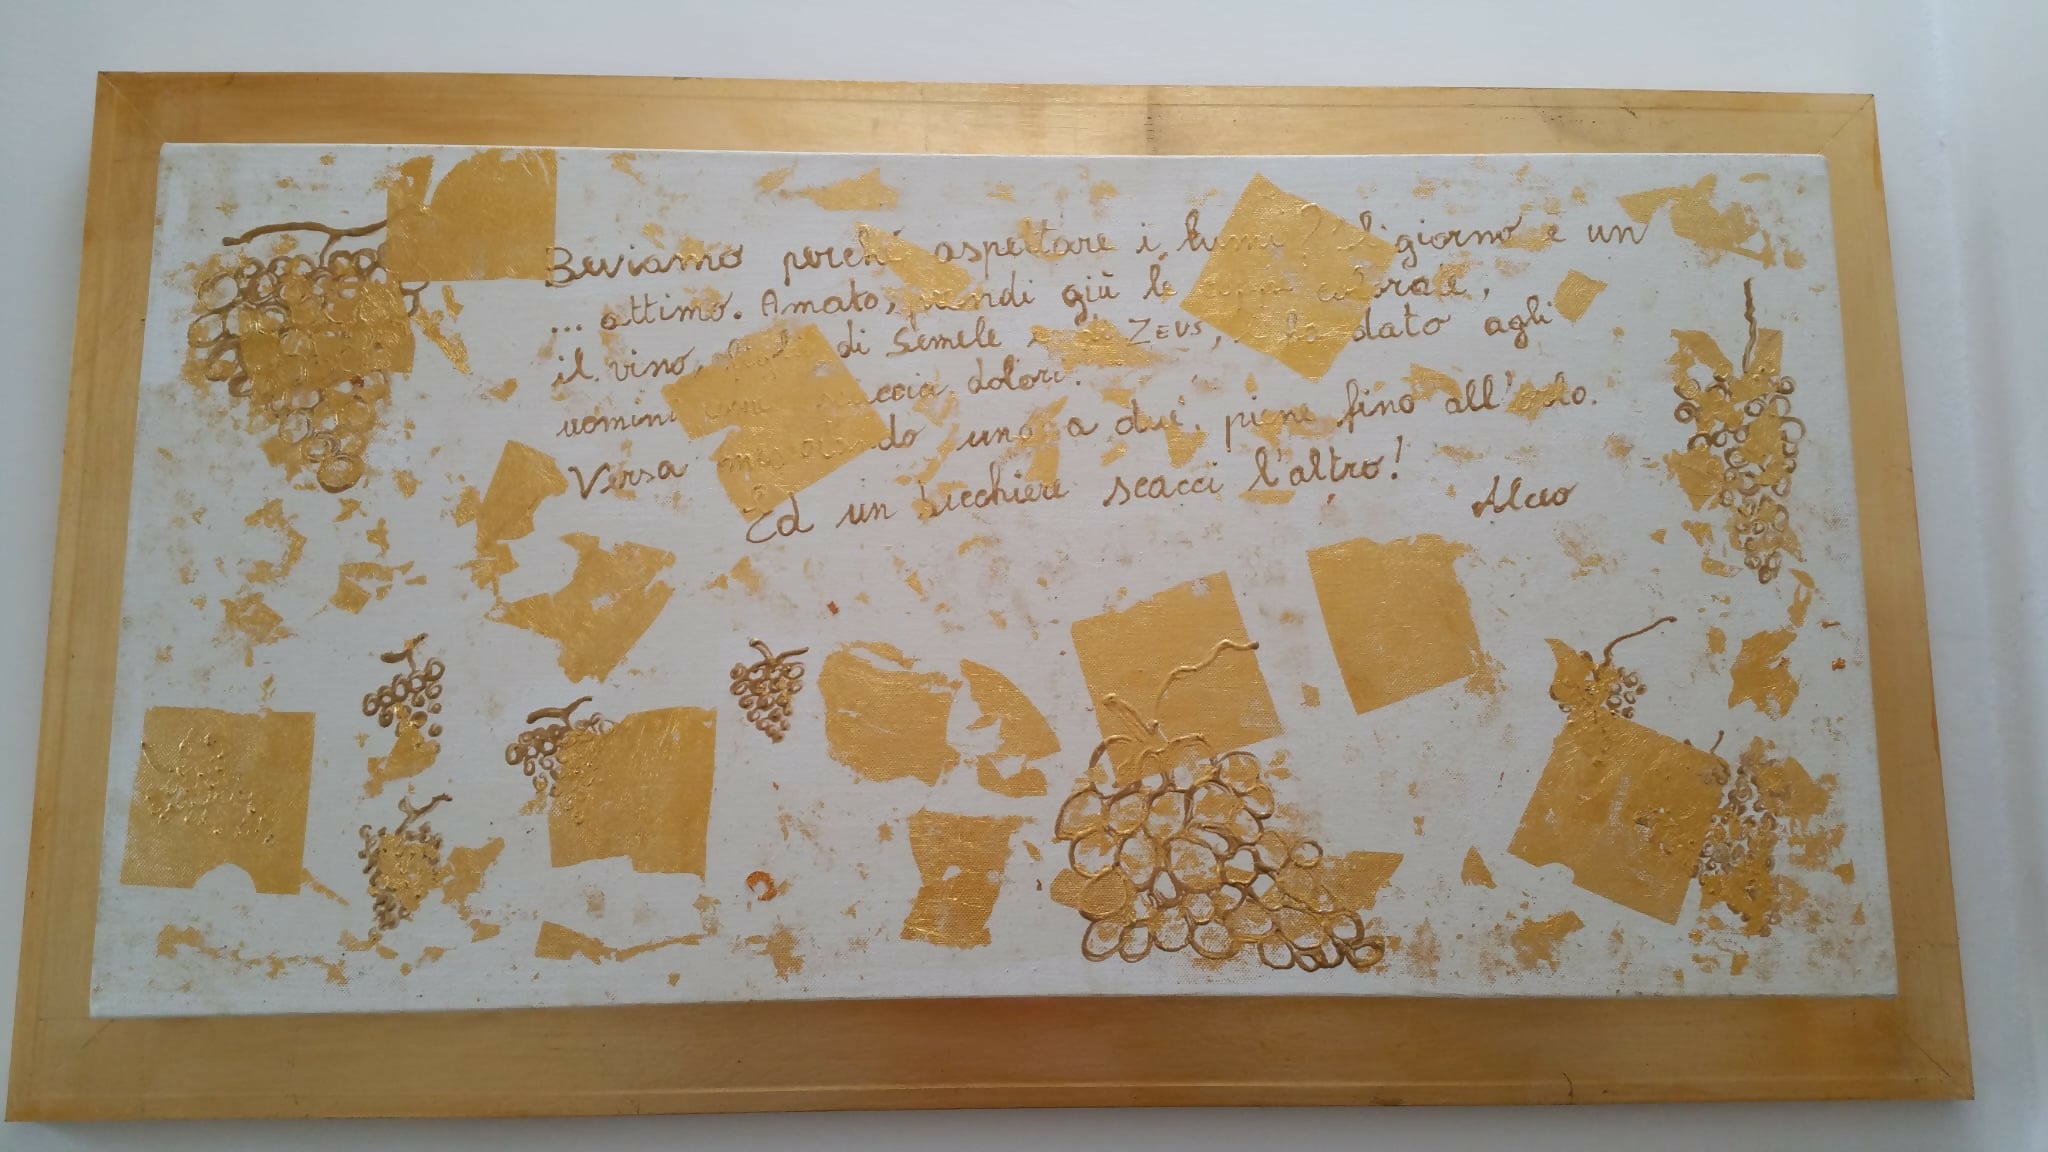 Beviamo perché aspettare i lumi? il giorno è un
... attimo. Amato, prendi giù le coppe colorate,
il vino, figlio di Semele e di ZEUS, ha dato agli
uomini scaccia dolori.
Versa mescolando uno a due, piene fino all'orlo.
Ed un bicchiere scacci l'altro!
Alceo